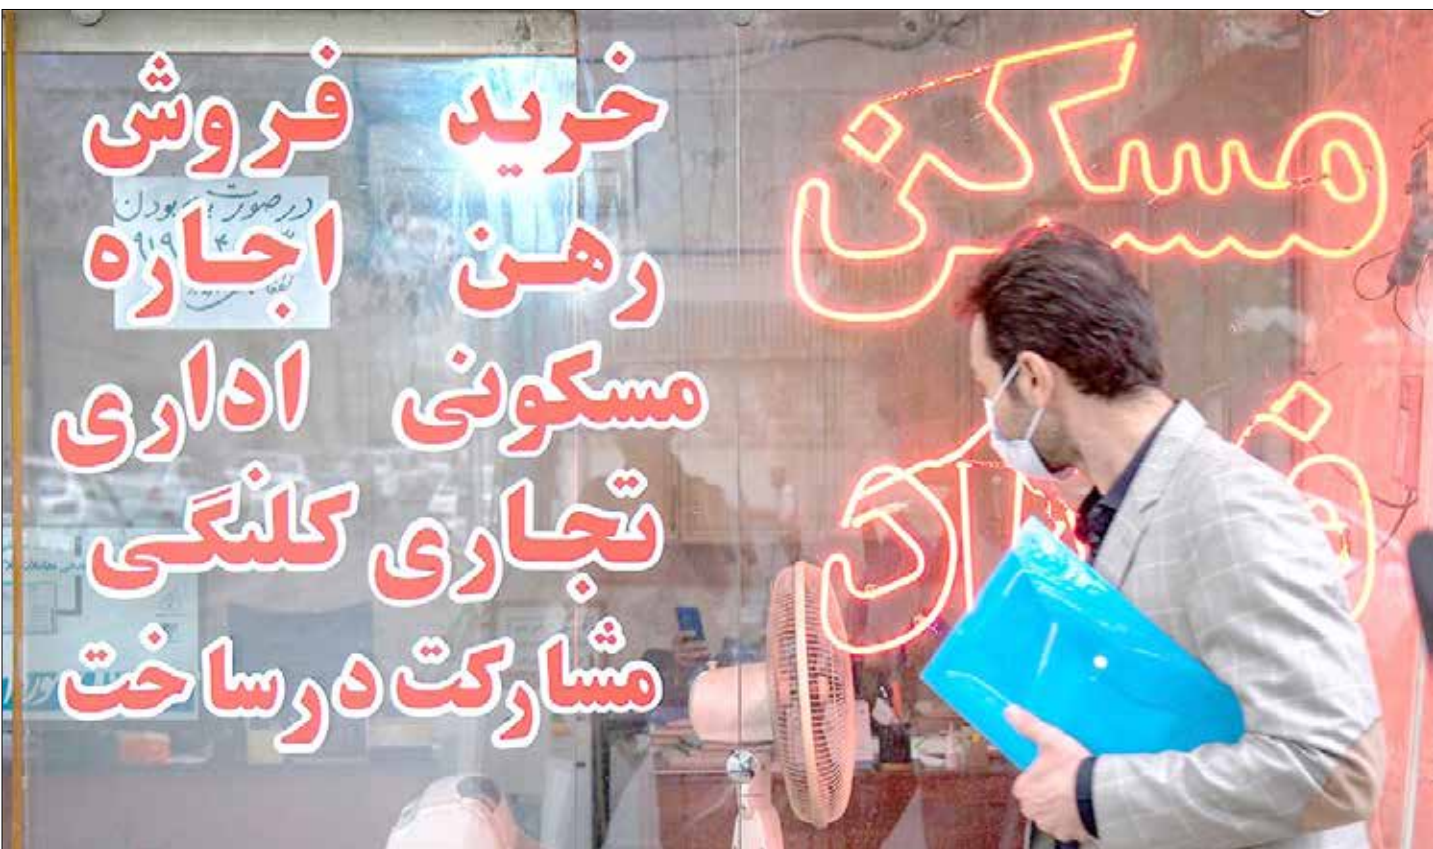 مسکن
خرید فروش
رهن اجاره
مسکونی اداری
تجاری کلنگی
مشارکت در ساخت
در صورت بودن